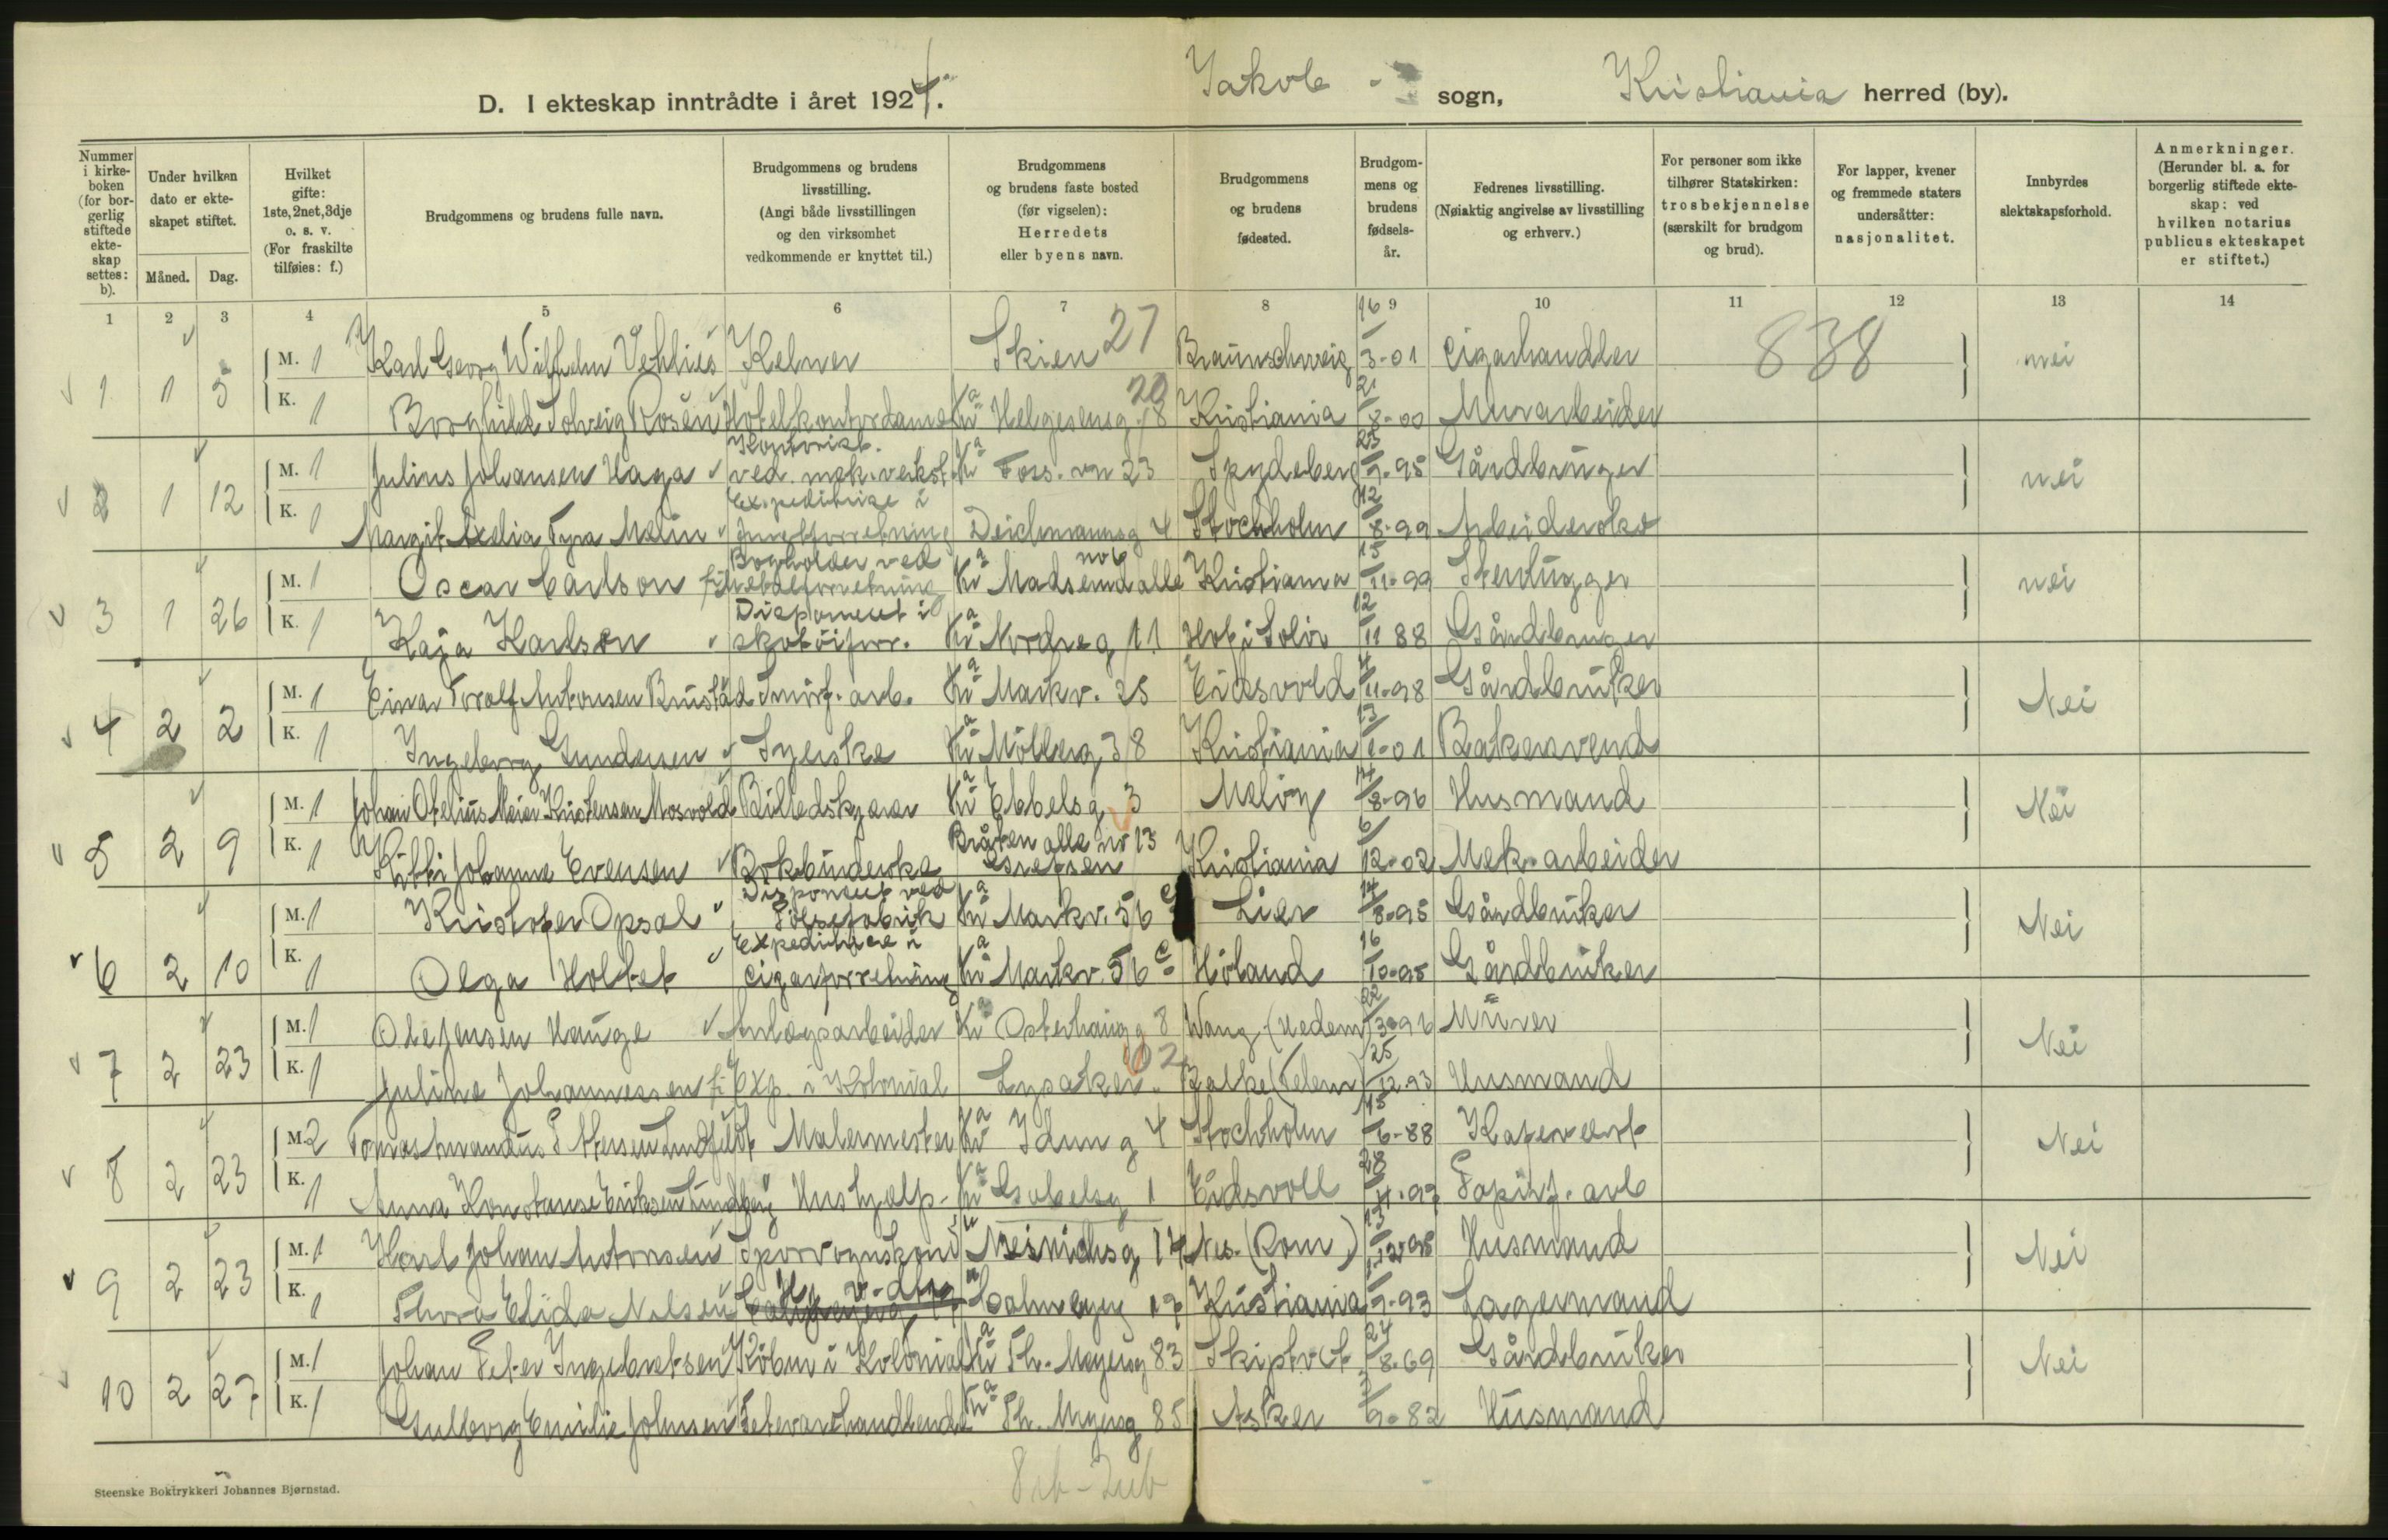 D. I ekteskap inntrådte i året 1924. Jakob sogn, Kristiania herred (by).
Nummer i kirkeboken (for borgerlig stiftede ekteskap settes: b).
Under hvilken dato er ekteskapet stiftet.
Måned. Dag.
Hvilket gifte: 1ste, 2net, 3dje o. s. v. (For fraskilte tilføies: f.)
Brudgommens og brudens fulle navn.
Brudgommens og brudens livsstilling. (Angi både livsstillingen og den virksomhet vedkommende er knyttet til.)
Brudgommens og brudens faste bosted (før vigselen): Herredets eller byens navn.
Brudgommens og brudens fødested.
Brudgommens og brudens fødselsår.
Fedrenes livsstilling. (Nøiaktig angivelse av livsstilling og erhverv.)
For personer som ikke tilhører Statskirken: trosbekjennelse (særskilt for brudgom og brud).
For lapper, kvener og fremmede staters undersåtter: nasjonalitet.
Innbyrdes slektskapsforhold.
Anmerkninger. (Herunder bl. a. for borgerlig stiftede ekteskap: ved hvilken notarius publicus ekteskapet er stiftet.)
1 2 3 4 5 6 7 8 9 10 11 12 13 14
1 1 5 M. 1 Karl Georg Wilhelm Vehlies Kelner Skien 27 Braunschweig 16/3-01 Cigarhandler 838 nei
K. 1 Borghild Solveig Rosén Hotelkontordame Kra Helgesensg. 18 20 Kristiania 21/8-00 Murarbeider
2 1 12 M. 1 Julius Johansen Haga Kontorist ved mek. verkst. Kra Foss.vn 23 Spydeberg 23/9-95 Gårdbruger nei
K. 1 Margit Tyra Melin Expeditrise i Deichmannsg 4 Stockholm 12/8-99 Arbeiderske
3 1 26 M. 1 Oscar Carlson Bogholder ved Kra Madserud alle no 6 Kristiania 15/11-99 Stenhugger nei
K. 1 Kaja Karlson Disponent i skotöiforr. Kra Nordreg 11 Hof i Solör 12/11 88 Gårdbruger
4 2 2 M. 1 Einar Torolf Antonsen Brustad Smörf. arb. Kra Markv. 25 Eidsvold 4/11-98 Gårdbruker Nei
K. 1 Ingeborg Gundersen Syerske Kra Möllerg. 38 Kristiania 13/1-01 Bakersvend
5 2 9 M. 1 Johan Otelius Meier Kristensen Mosvold Billedskjærer Kra Ebbelsg. 3 Melöy 14/8-96 Husmand Nei
K. 1 Kitti Johanne Evensen Bokbinderske Bråten alle no 13 Grefsen Kristiania 6/12-02 Mek. arbeider
6 2 10 M. 1 Kristofer Opsal Disponent ved Pölsefabrik Kra Markv. 56 c Lier 14/8-95 Gårdbruker Nei
K. 1 Olga Holtet Expeditrice i Cigarforretning Kra Markv. 56 c Höland 16/10-95 Gårdbruker
7 2 23 M. 1 Ole Jensen Hauge Anlægsarbeider Kr Osterhausg 8 Vang (Hedem) 22/3-96 Murer Nei
K. 1 Juline Johannessen Exp. i Kolonial Lysaker 02 25/12-93 Husmand
8 2 23 M. 2 Tomas Amandus Malermester Kra Idun g 4 Stockholm 15/6-88 Nei
K. 1 Anna Konstanse Eriksen Lindberg Hushjælp Kra 1 Eidsvoll 28/4-99 Papirf. arb
9 2 23 M. 1 Karl Johan Antonsen Sporvognskond Nes (Rom.) 13/12-95 Husmand Nei
K. 1 Thora Elida Nilsen Calmeyerg 17 Kristiania 9-93 Lagermand
10 2 27 M. 1 Johan Peter Ingebretsen Köbm i Kolonial Kra Th. Meyersg 83 Skiptvet 24/8-69 Gårdbruker Nei
K. 1 Gulborg Emilie Johnsen Fetevarehandlende Kra Th. Meyersg 85 Asker 9-82 Husmand
Steenske Boktrykkeri Johannes Bjørnstad.